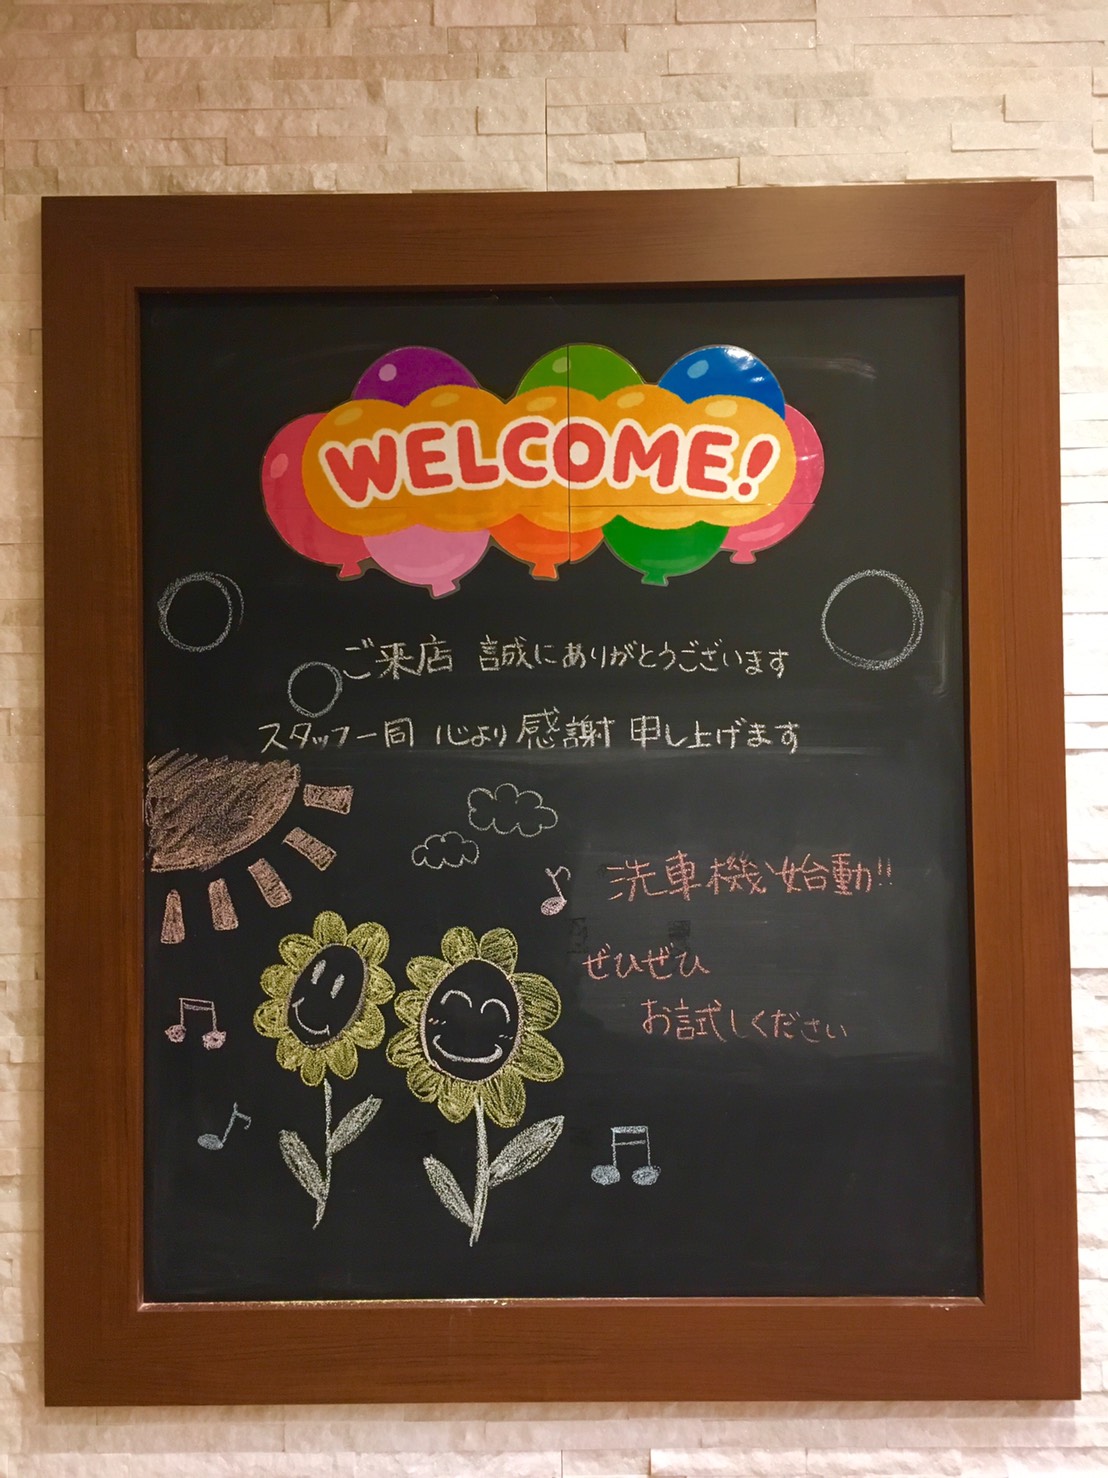 WELCOME!
ご来店 誠にありがとうございます
スタッフ一同 心より 感謝 申し上げます
洗車機始動!!
ぜひぜひ
お試しください